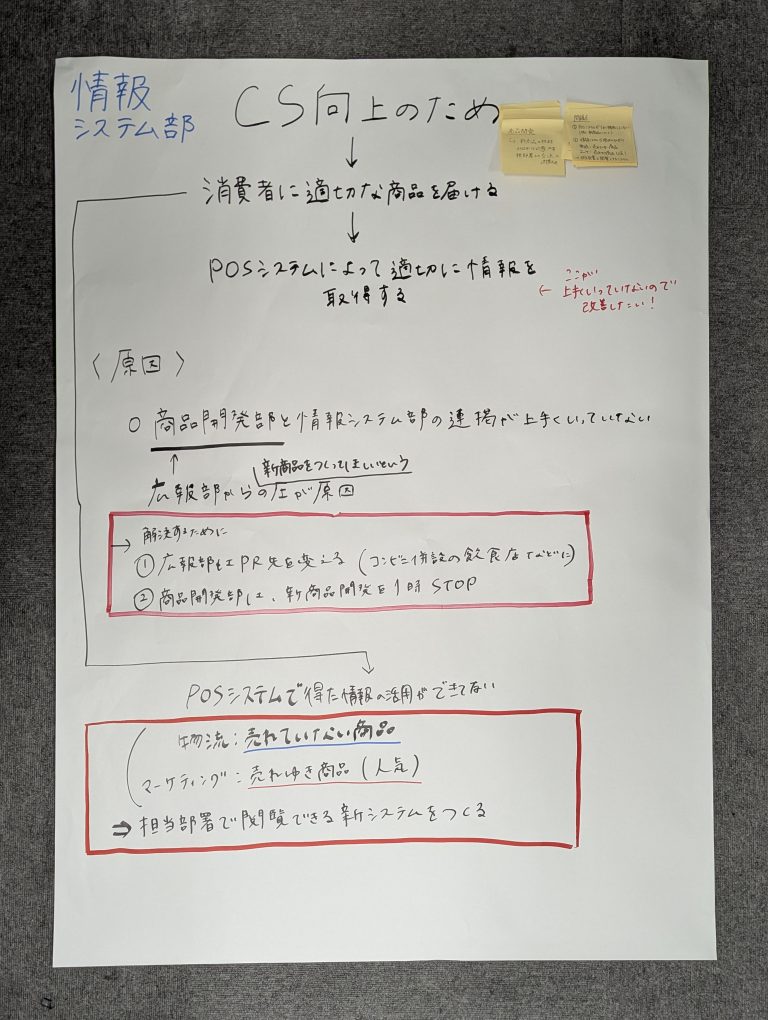 情報
システム部
CS向上のため
↓
消費者に適切な商品を届ける
↓
POSシステムによって適切に情報を
取得する
← ここが
上手くいっていないので
改善したい!
〈原因〉
○ 商品開発部と情報システム部の連携が上手くいっていない
↑
新商品をつくってほしいという
広報部からの圧が原因
→ 解決するために
① 広報部はPR先を変える (コンビニ併設の飲食店などに)
② 商品開発部は、新商品開発を1時STOP
POSシステムで得た情報の活用ができてない
物流:売れていない商品
マーケティング:売れゆき商品(人気)
⇒ 担当部署で閲覧できる新システムをつくる